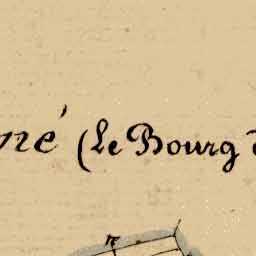 né (Le Bourg